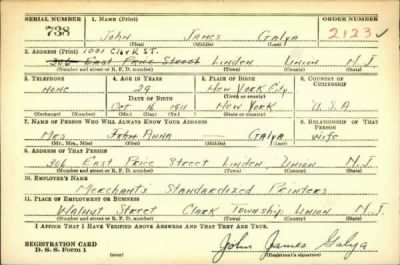 SERIAL NUMBER 1. NAME (Print) ORDER NUMBER
738 John James Galya 2123
(First) (Middle) (Last)
2. ADDRESS (Print) 1001 Clark St.
306 East Price Street Linden Union N.J.
(Number and street or R. F. D. number) (Town) (County) (State)
3. TELEPHONE 4. AGE IN YEARS 5. PLACE OF BIRTH 6. COUNTRY OF CITIZENSHIP
None 29 New York City
DATE OF BIRTH (Town or county)
Oct 16 1911 New York U.S.A
(Exchange) (Number) (Mo.) (Day) (Yr.) (State or country)
7. NAME OF PERSON WHO WILL ALWAYS KNOW YOUR ADDRESS 8. RELATIONSHIP OF THAT PERSON
Mrs John Anna — Galya Wife
(Mr., Mrs., Miss) (First) (Middle) (Last)
9. ADDRESS OF THAT PERSON
306 East Price Street Linden Union N.J
(Number and street or R. F. D. number) (Town) (County) (State)
10. EMPLOYER'S NAME
Merchants Standardized Printers
11. PLACE OF EMPLOYMENT OR BUSINESS
Walnut Street Clark Township Union N.J.
(Number and street or R. F. D. number) (Town) (County) (State)
I AFFIRM THAT I HAVE VERIFIED ABOVE ANSWERS AND THAT THEY ARE TRUE.
REGISTRATION CARD
D. S. S. Form 1 John James Galya
(Registrant's signature)